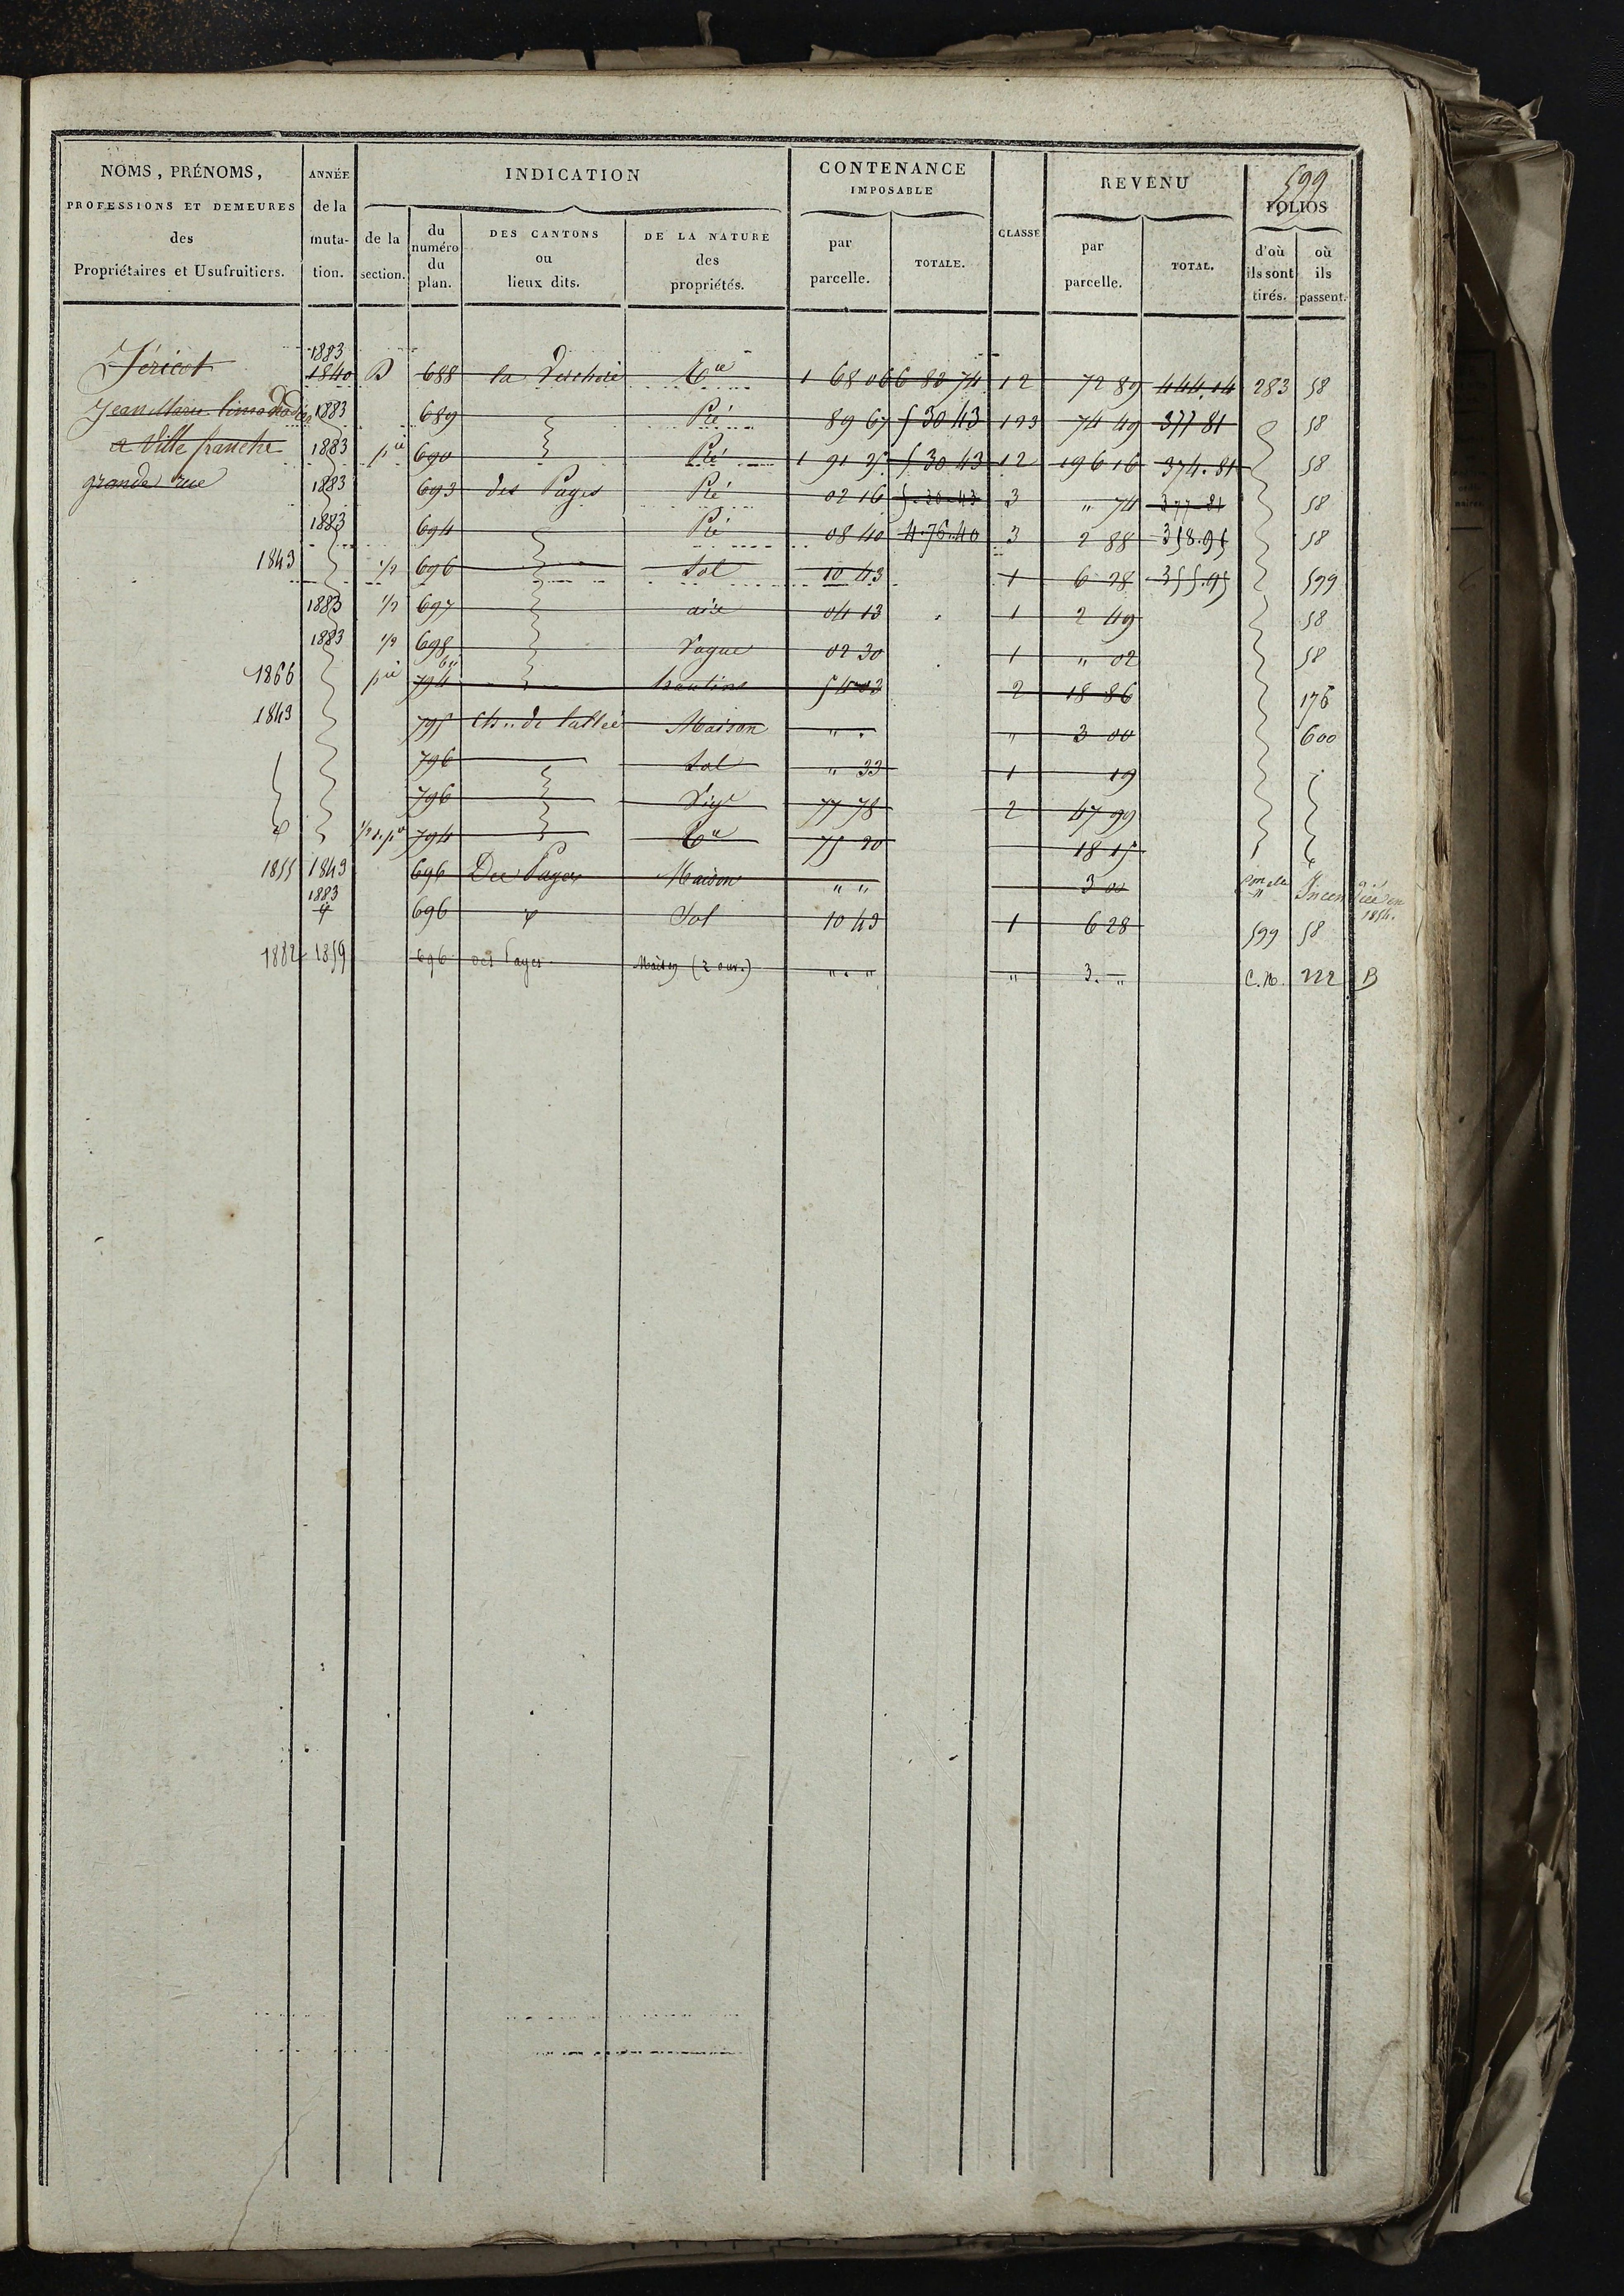 599
NOMS, PRÉNOMS, ANNÉE INDICATION CONTENANCE REVENU
IMPOSABLE
PROFESSIONS ET DEMEURES de la FOLIOS
des muta- de la du DES CANTONS DE LA NATURE par TOTALE. CLASSE par TOTAL. d'où où
numéro ou des ils sont ils
Propriétaires et Usufruitiers. tion. section. du lieux dits. propriétés. parcelle. parcelle. tirés. passent.
plan.
1883
Jéricot 1840 B 688 la Tre 1 68 06 6 82 74 12 72 89 444.14 283 58
Jean Marie 1883 689 Pré 89 67 5 30 43 123 74 49 377 81 58
a Ville franche 1883 pie 690 Pré 1 91 25 5.30 43 12 196 16 374.81 58
grande rue 1883 693 des Pages Pré 02 16 5.30.43 3 " 74 377 81 58
1883 694 Pré 08 40 4.76.40 3 2 88 358.95 58
1843 1/2 696 Sol 10 43 1 6 28 355.95 599
1883 1/2 697 aire 04 13 1 2 49 58
1883 1/2 698 Vague 02 30 1 " 02 58
1866 pie 794 bis hautins 54 03 2 18 86 176
1843 795 Ch.. de Maison " . " 3 00 600
796 Sol " 33 1 19
796 Vige 77 78 2 47 99
d° 1/2 d. pie 794 Tre 75 20 18 15
1855 1843 696 Des Pages Maison " " 3 00 Incendiée en
1854.
1883
696 Sol 10 43 1 6 28 599 58
1882 1859 696 des Pages Maison (2 ouv.) " . " " 3. " C. N. 222 B